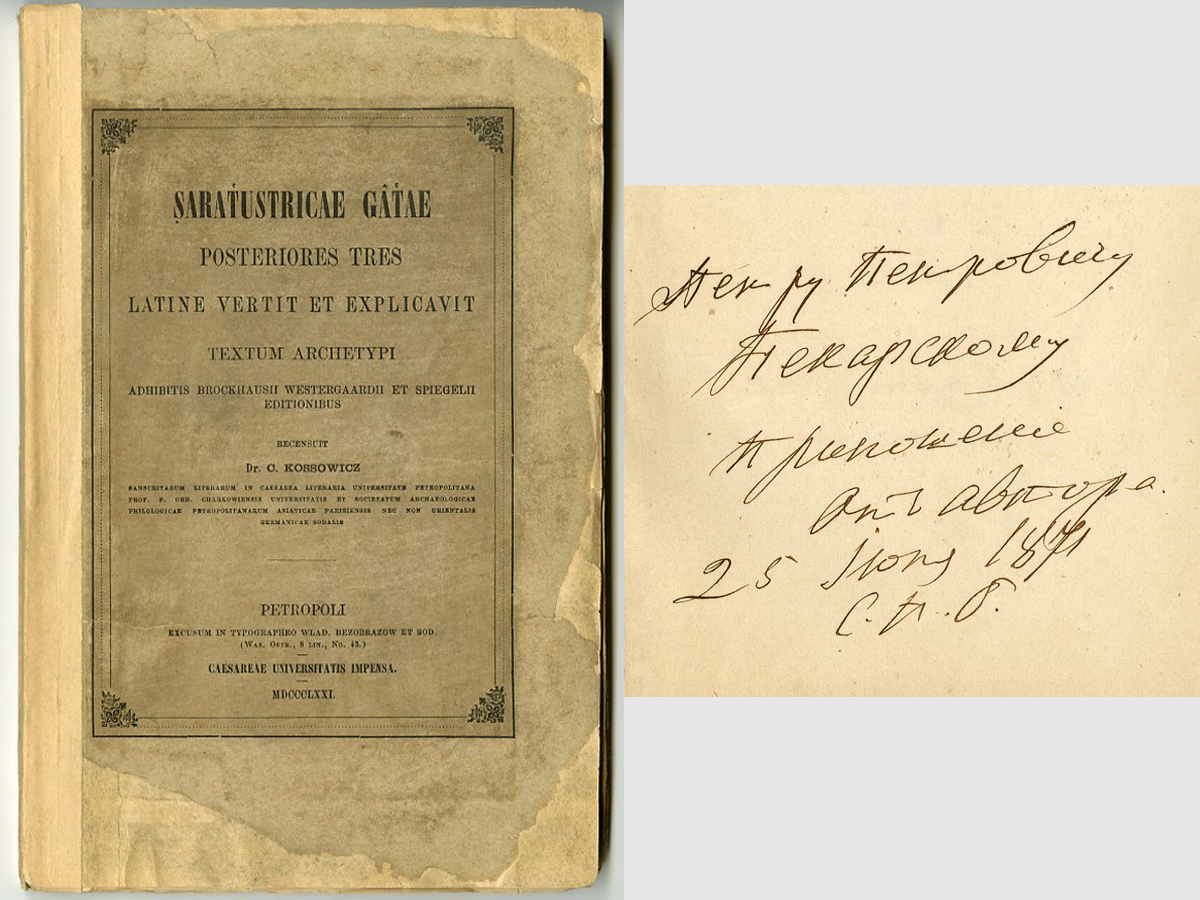 ṢARAṫUSTRICAE GÂṫAE
POSTERIORES TRES
LATINE VERTIT ET EXPLICAVIT
TEXTUM ARCHETYPI
ADHIBITIS BROCKHAUSII WESTERGAARDII ET SPIEGELII
EDITIONIBUS
RECENSUIT
Dr. C. KOSSOWICZ
SANSCRITARUM LITERARUM IN CAESAREA LITERARIA UNIVERSITATE PETROPOLITANA
PROF. P. ORD. CHARKOWIENSIS UNIVERSITATIS ET SOCIETATUM ARCHAEOLOGICAE
PHILOLOGICAE PETROPOLITANARUM ASIATICAE PARISIENSIS NEC NON ORIENTALIS
GERMANICAE SODALIS
PETROPOLI
EXCUSUM IN TYPOGRAPHEO WLAD. BEZOBRAZOW ET SOD.
(WAS. OSTR., 8 LIN., No. 45.)
CAESAREAE UNIVERSITATIS IMPENSA.
MDCCCLXXI.
Петру Петровичу
Пекарскому
Приношеніе
Отъ автора.
25 Іюня 1871
С.П.б.